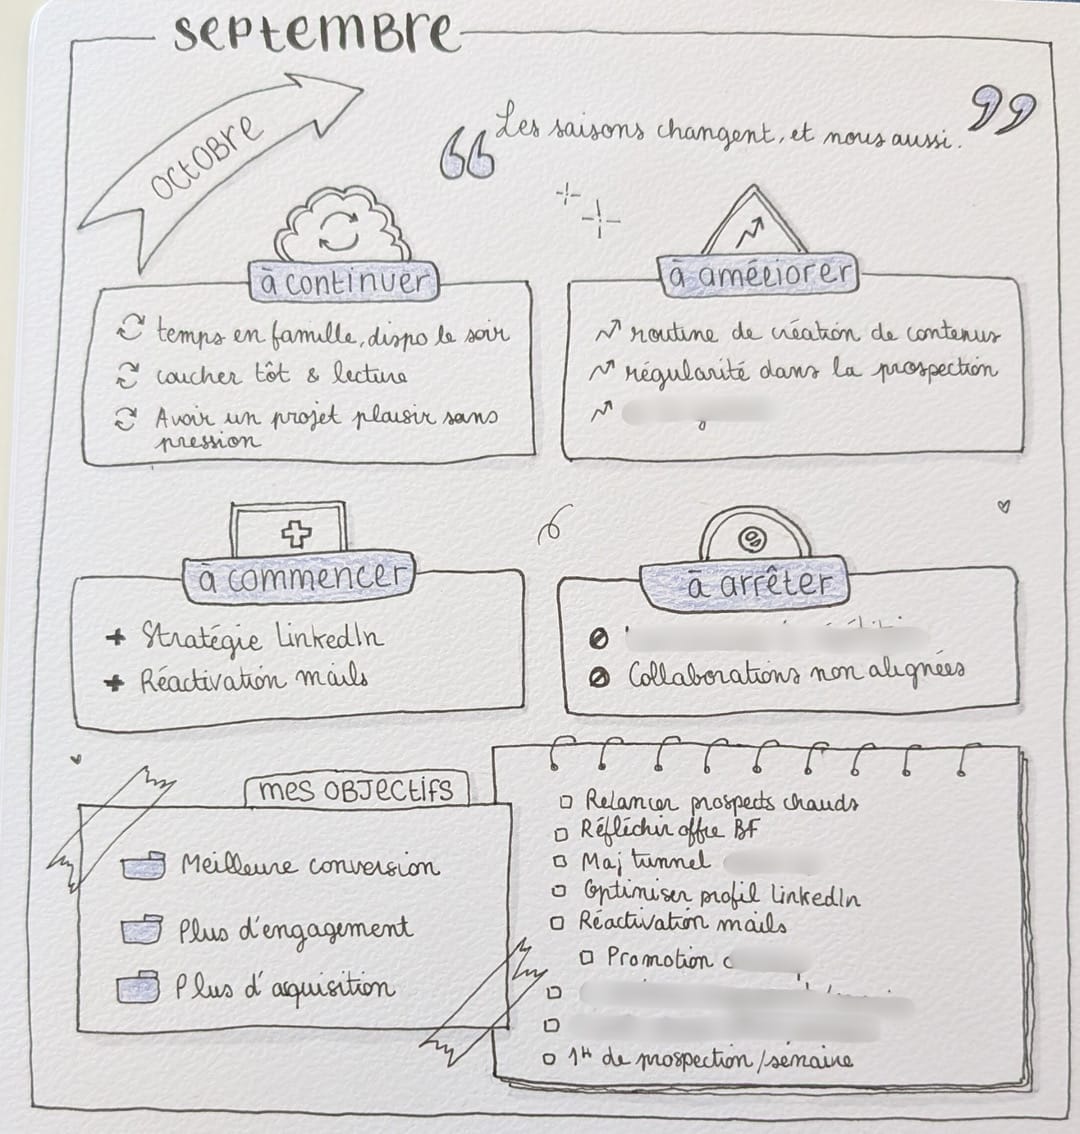 septembre
octobre
Les saisons changent, et nous aussi.
à continuer
temps en famille, dispo le soir
coucher tôt & lecture
Avoir un projet plaisir sans
pression
à améliorer
routine de création de contenus
régularité dans la prospection
à commencer
+ Stratégie LinkedIn
+ Réactivation mails
à arrêter
Collaborations non alignées
mes objectifs
Meilleure conversion
Plus d'engagement
Plus d'aquisition
Relancer prospects chauds
Réfléchir offre BF
Maj tunnel
Optimiser profil LinkedIn
Réactivation mails
Promotion
1h de prospection/semaine